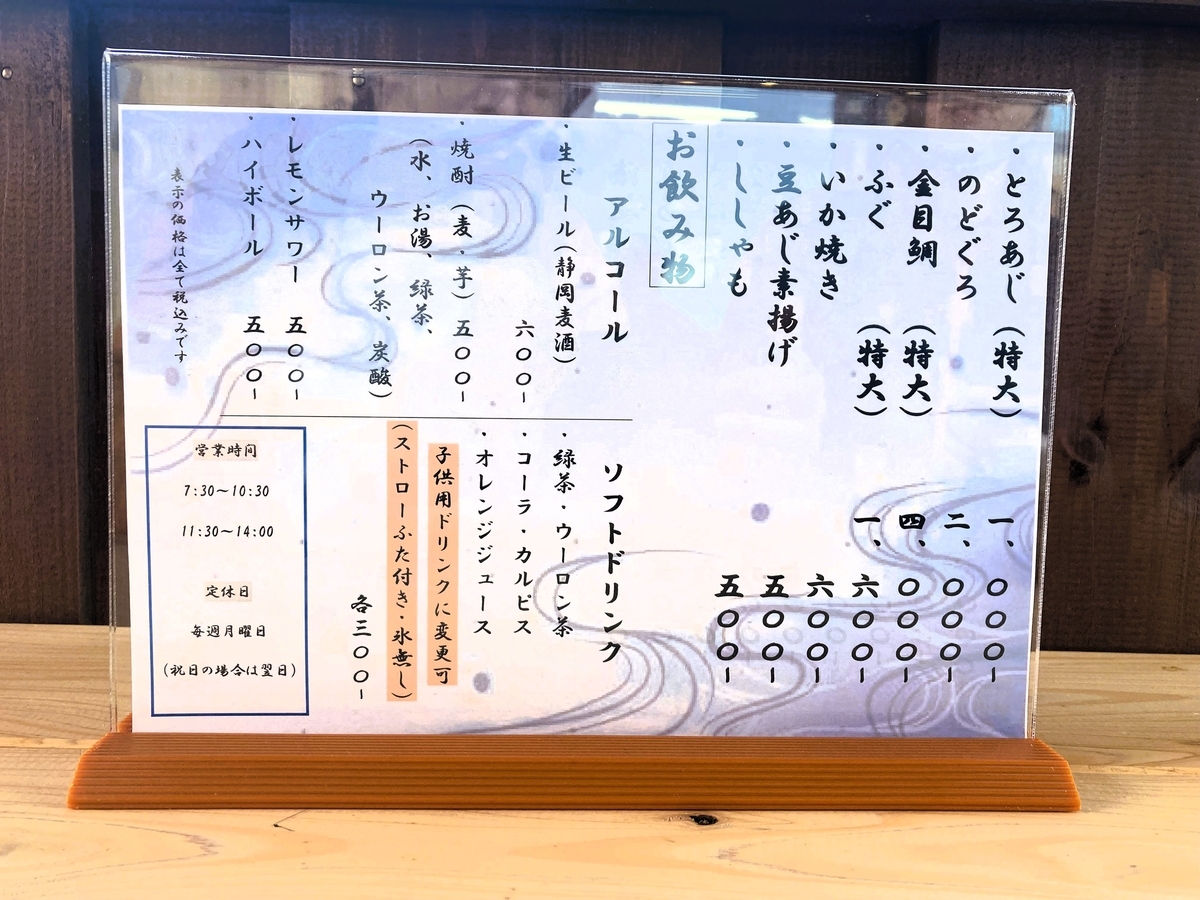 ・とろあじ(特大) 一、〇〇〇-
・のどぐろ 二、〇〇〇-
・金目鯛(特大) 四、〇〇〇-
・ふぐ(特大) 一、六〇〇-
・いか焼き 六〇〇-
・豆あじ素揚げ 五〇〇-
・ししゃも 五〇〇-
お飲み物
アルコール
・生ビール(静岡麦酒)
六〇〇-
・焼酎(麦、芋) 五〇〇-
(水、お湯、緑茶、
ウーロン茶、炭酸)
・レモンサワー 五〇〇-
・ハイボール 五〇〇-
表示の価格は全て税込みです
ソフトドリンク
・緑茶・ウーロン茶
・コーラ・カルピス
・オレンジジュース
子供用ドリンクに変更可
(ストローふた付き・氷無し)
各三〇〇-
営業時间
7:30〜10:30
11:30〜14:00
定休日
毎週月曜日
(祝日の場合は翌日)